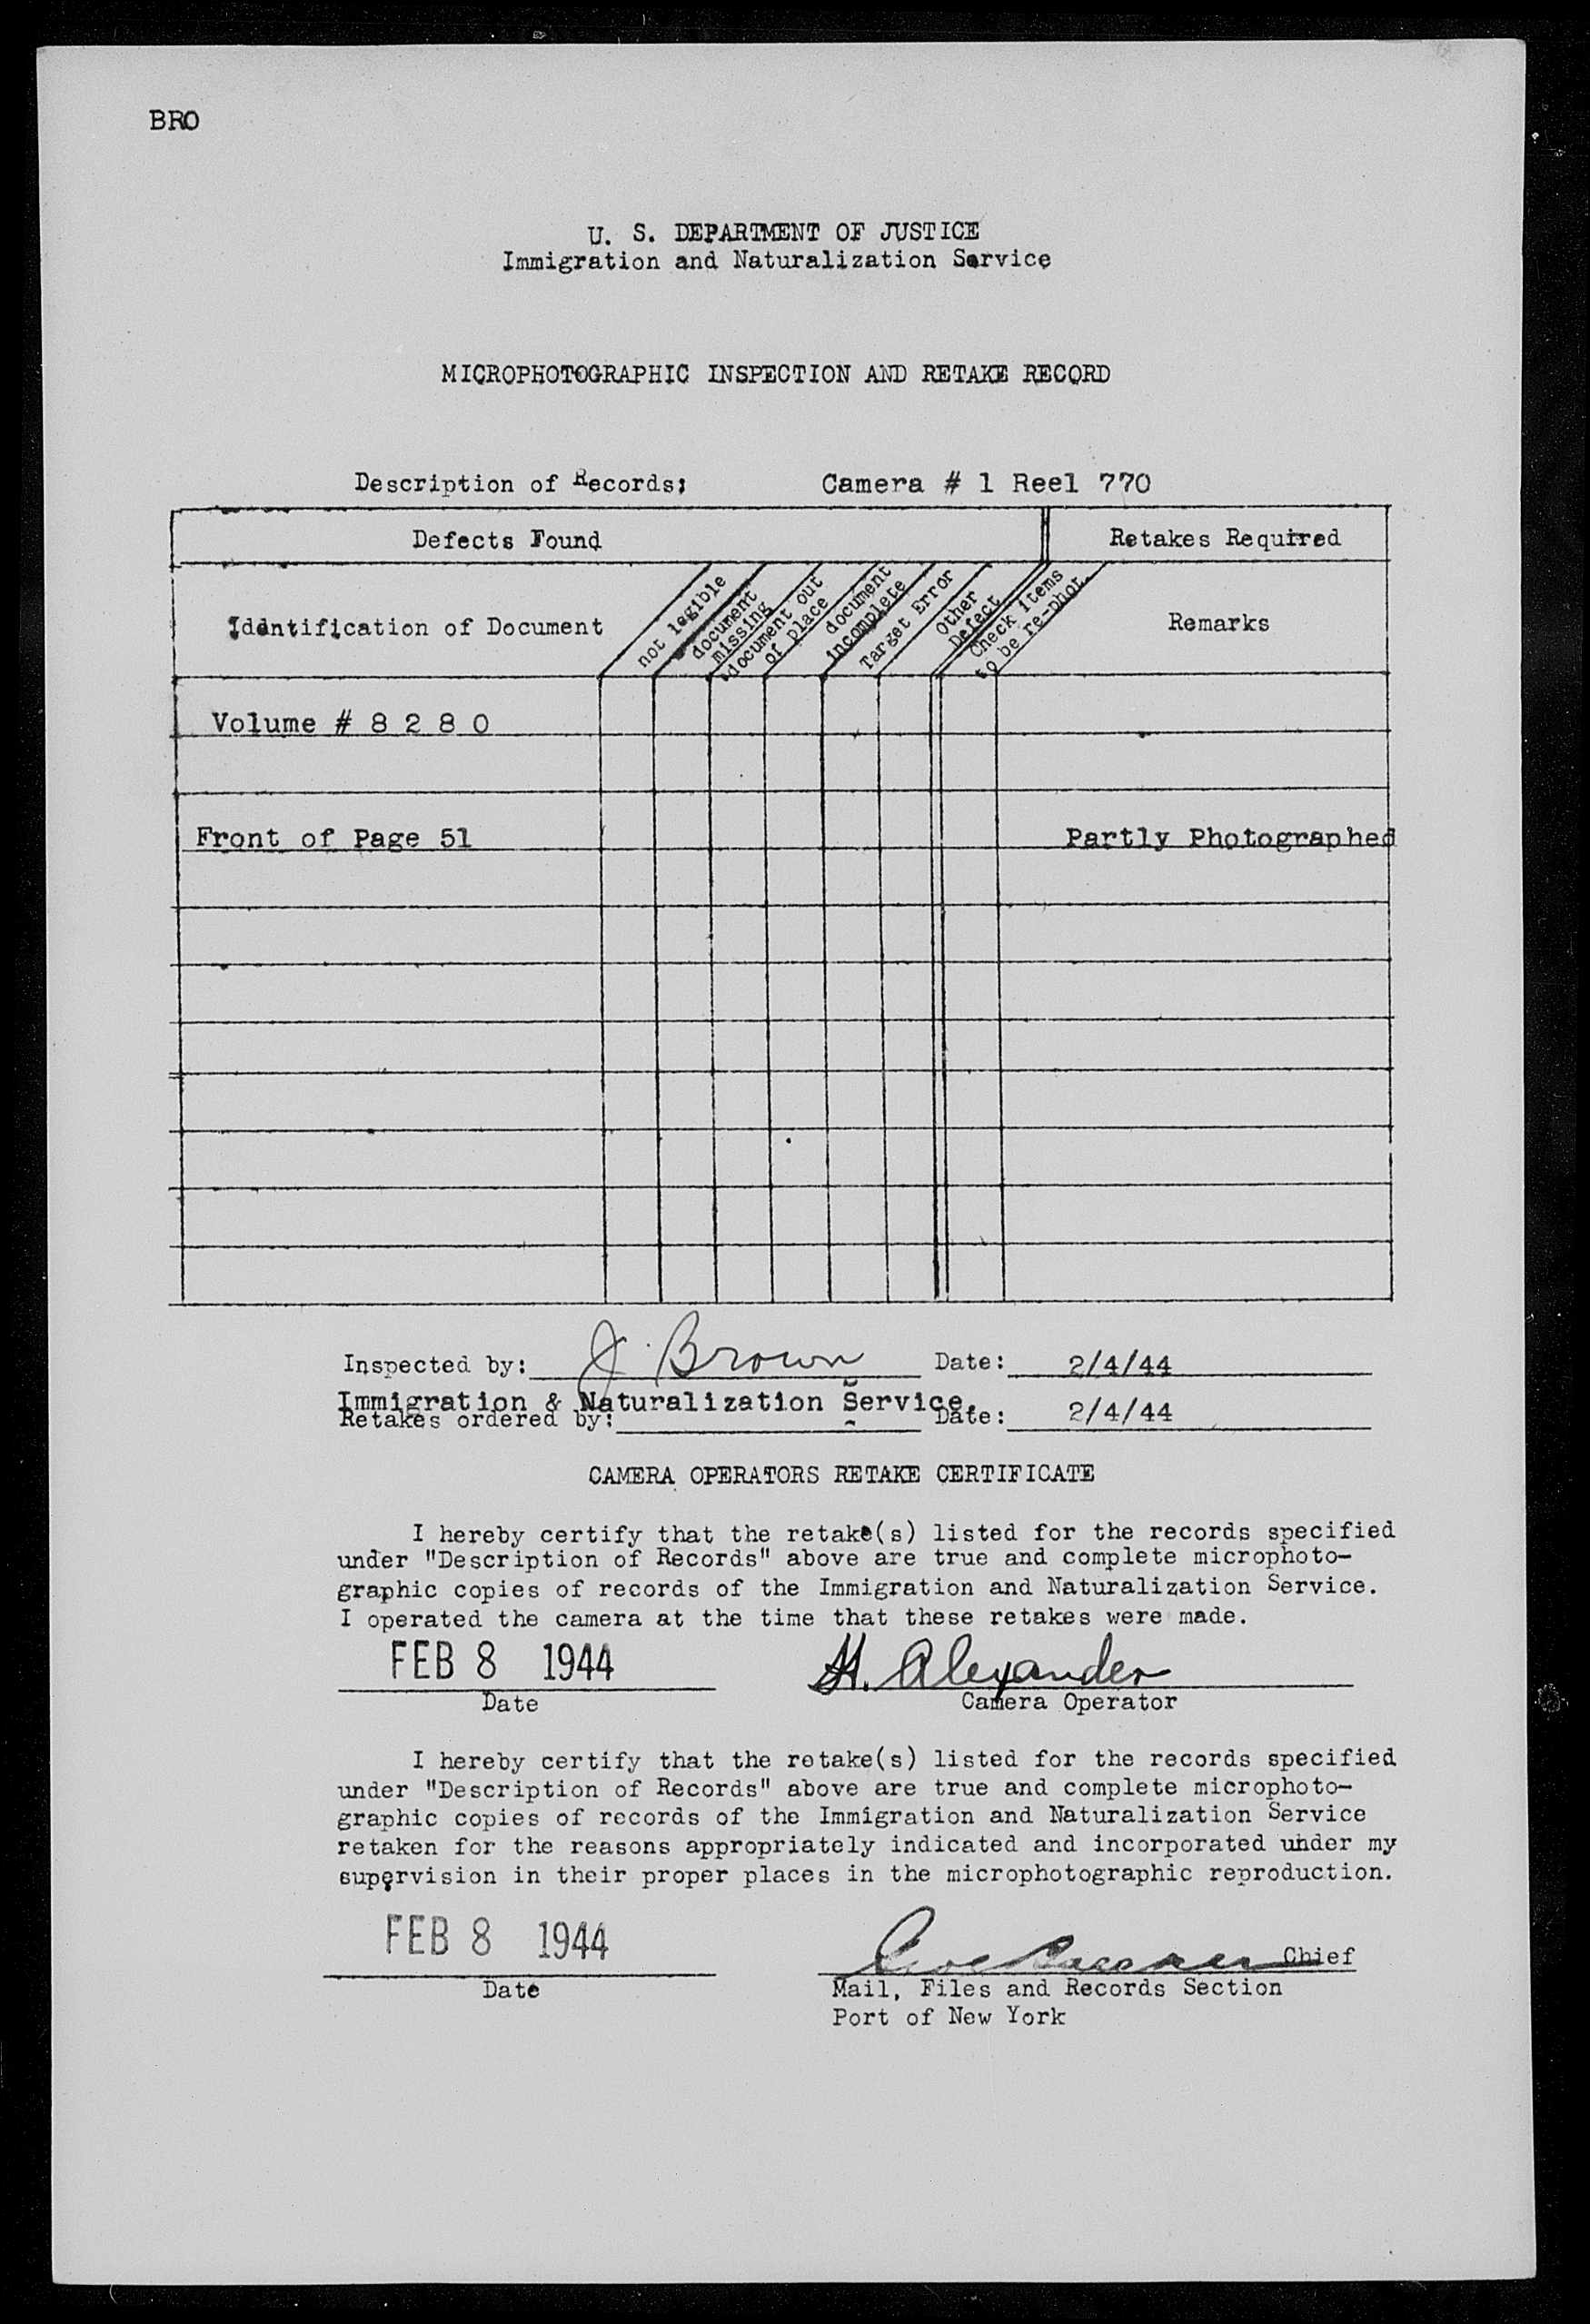 BRO
U. S. DEPARTMENT OF JUSTICE
Immigration and Naturalization Service
MICROPHOTOGRAPHIC INSPECTION AND RETAKE RECORD
Description of Records: Camera # 1 Reel 770
Defects Found Retakes Required
Identification of Document
not legible
document
missing
document out
of place
document
incomplete
Target Error
Other
Defect
Check items
to be re-phot.
Remarks
Volume # 8 2 8 0
Front of Page 51 Partly Photographed
Inspected by: J. Brown Date: 2/4/44
Immigration & Naturalization Service.
Retakes ordered by: Date: 2/4/44
CAMERA OPERATORS RETAKE CERTIFICATE
I hereby certify that the retake(s) listed for the records specified
under "Description of Records" above are true and complete microphoto-
graphic copies of records of the Immigration and Naturalization Service.
I operated the camera at the time that these retakes were made.
FEB 8 1944 H. Alexander
Date Camera Operator
I hereby certify that the retake(s) listed for the records specified
under "Description of Records" above are true and complete microphoto-
graphic copies of records of the Immigration and Naturalization Service
retaken for the reasons appropriately indicated and incorporated under my
supervision in their proper places in the microphotographic reproduction.
FEB 8 1944 Chief
Date Mail, Files and Records Section
Port of New York